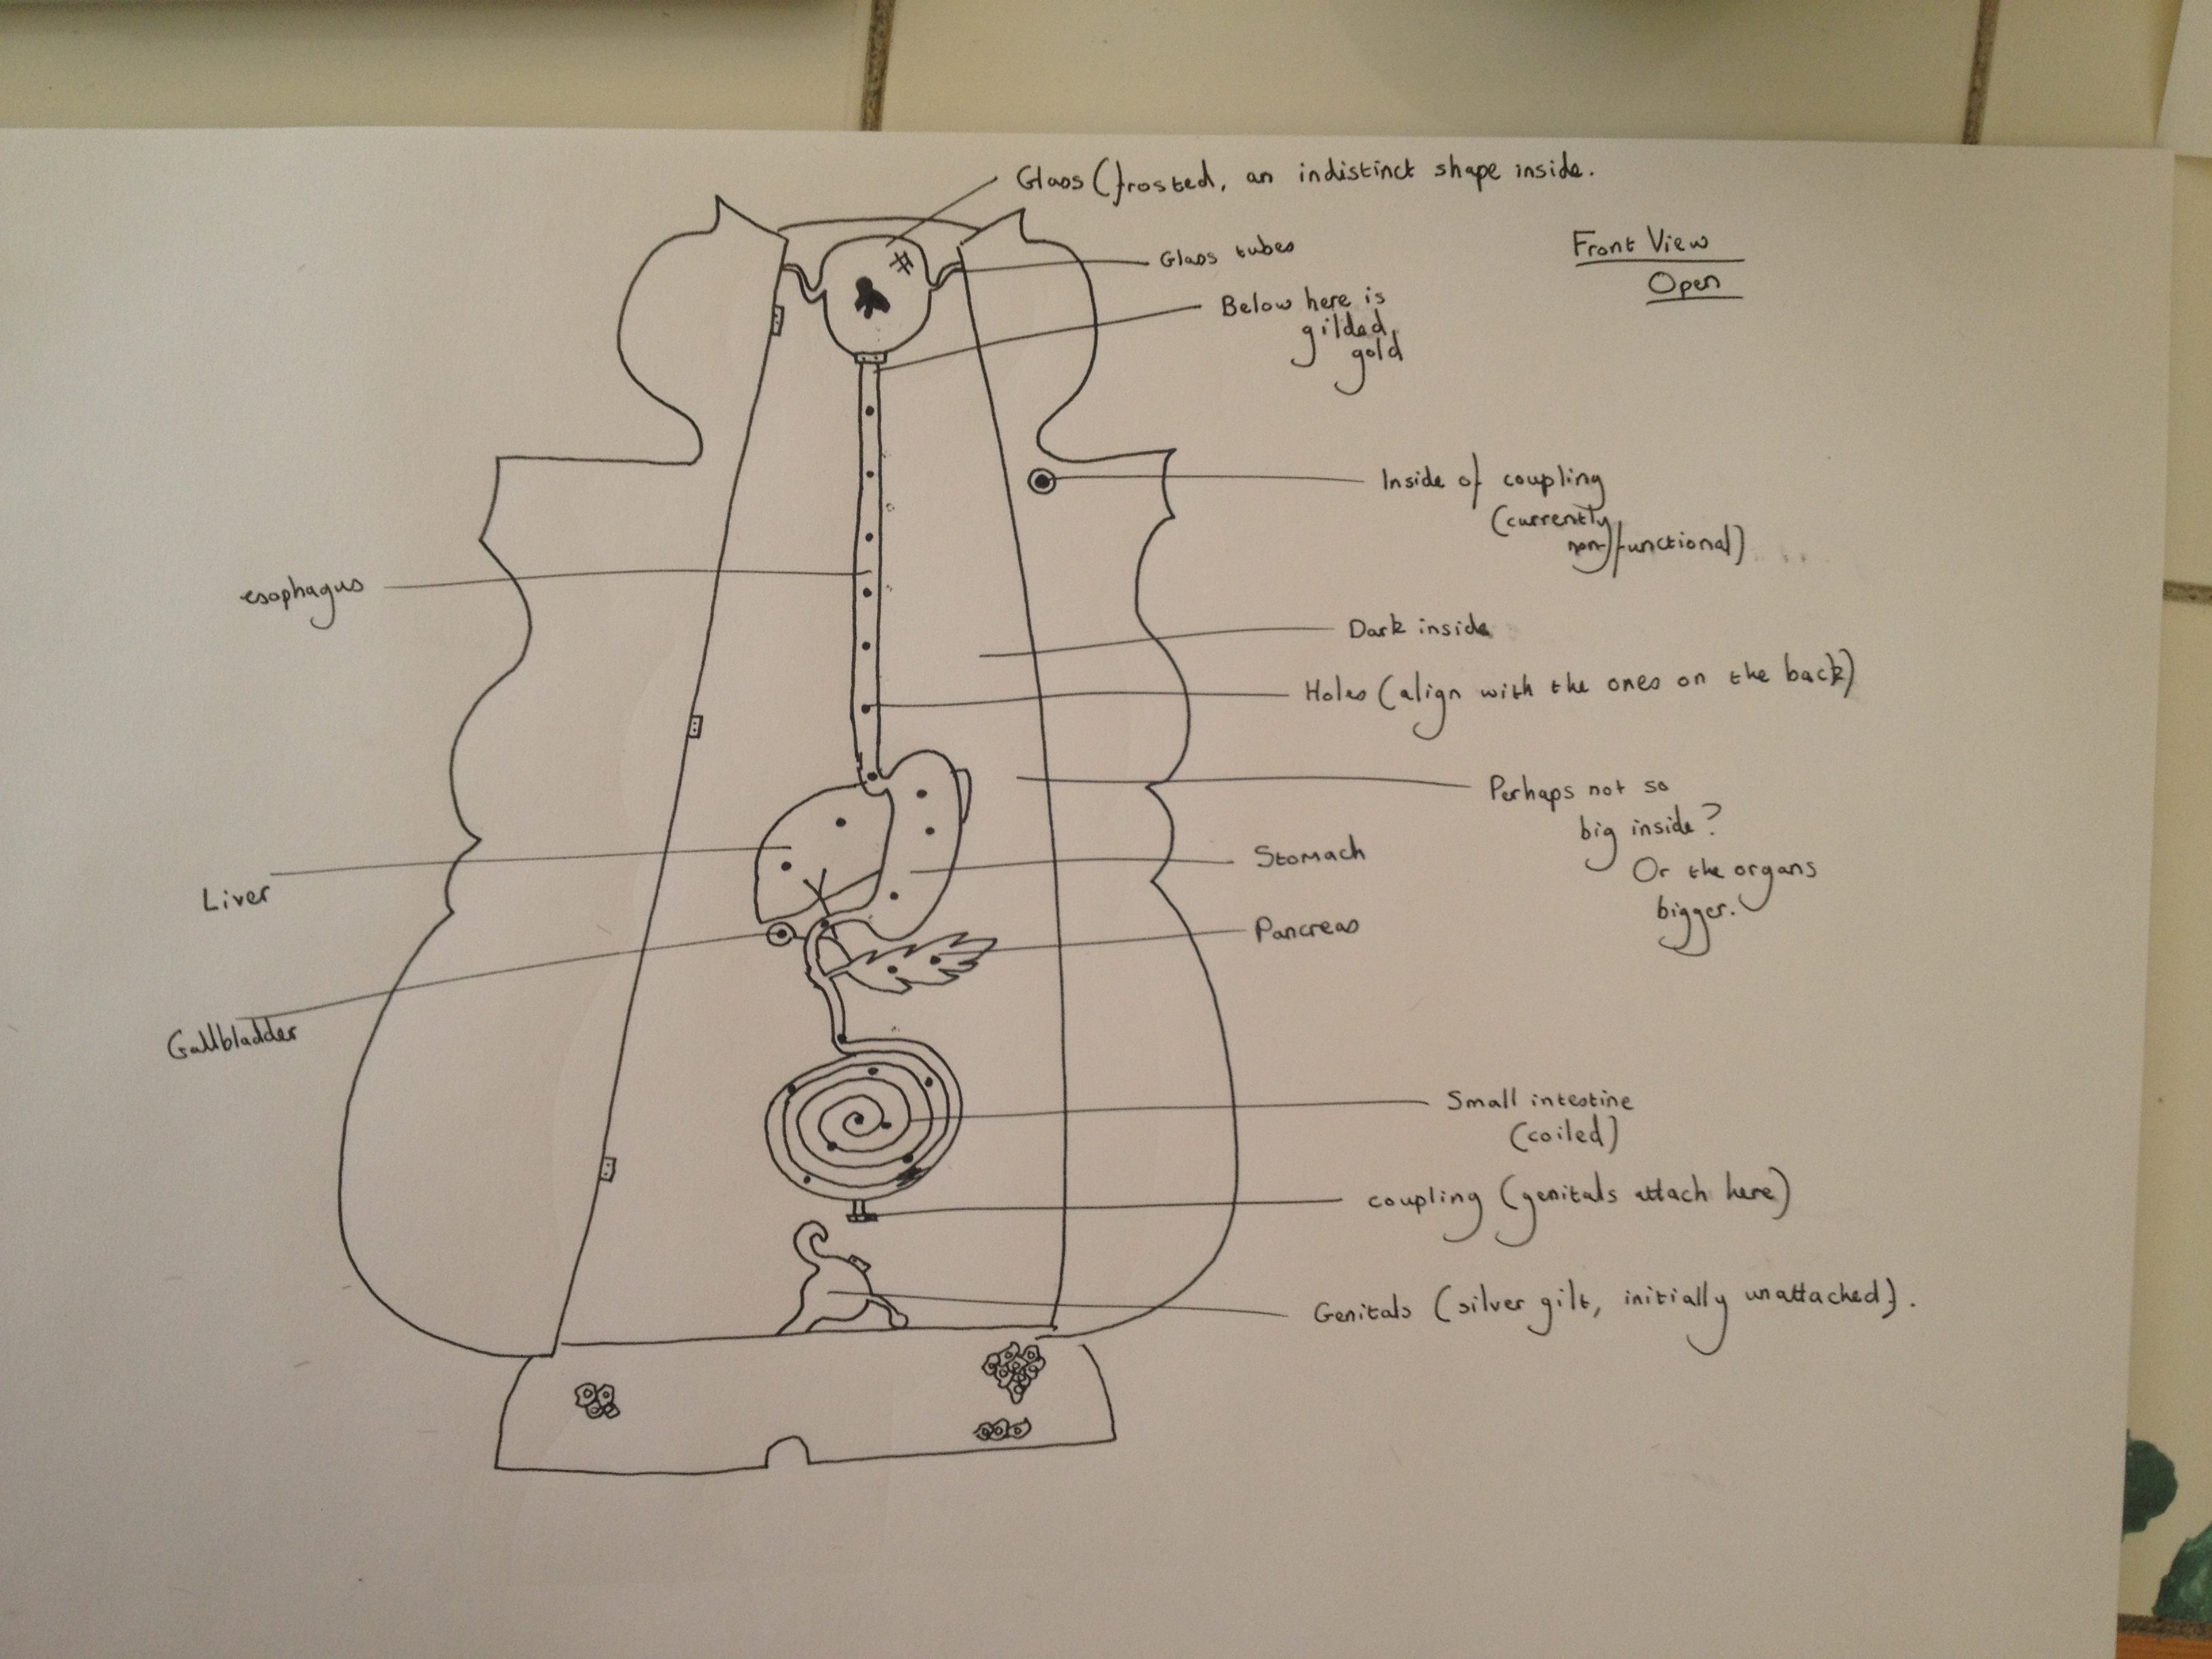 Glass (frosted, an indistinct shape inside.
Front View
Open
Glass tubes
Below here is
gilded
gold
Inside of coupling
(currently
non-functional)
esophagus
Dark inside
Holes (align with the ones on the back)
Perhaps not so
big inside?
Or the organs
bigger.
Stomach
Liver
Pancreas
Gallbladder
Small intestine
(coiled)
coupling (genitals attach here)
Genitals (silver gilt, initially unattached).